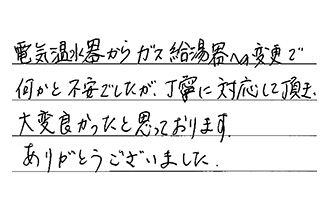 電気温水器からガス給湯器への変更で
何かと不安でしたが、丁寧に対応して頂き、
大変良かったと思っております。
ありがとうございました。